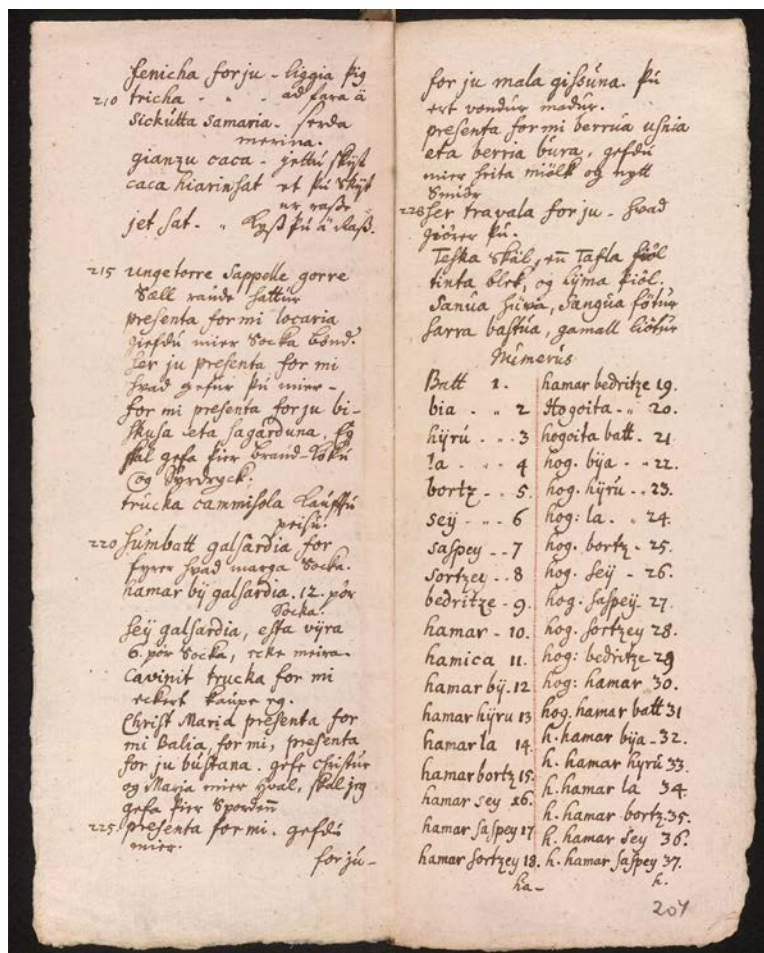 fenicha for ju - liggia þig
210 tricha - " - ad fara ä
Sickutta Samaria - serda
merina.
gianzu caca - jettu skÿt
caca hiarinsat et þu skÿt
ur rasse
jet sat - " Kÿss þu ä Rass.
215 ungetorre Sappelle gorre
Sæll raude hattur
presenta for mi locaria
giefdu mier Socka bönd.
Ser ju presenta for mi
hvad gefur þu mier -
for mi presenta for ju bi-
skusa eta sagarduna. Eg
skal gefa þier braud-köku
og Syrdryck.
trucka cammisola kauffu
peisu.
220 Sumbatt galsardia for
fyrer hvad marga Socka.
hamar bÿ galsardia. 12. pör
Socka.
Seÿ galsardia, esta vÿra
6. pör Socka, ecke meira.
Cavinit trucka for mi
eckert kaupe eg.
Christ Maria presenta for
mi Balia, for mi, presenta
for ju bustana. gefe christur
og Maria mier hval, skal jeg
gefa þier Spordenn
225. presenta for mi. gefdu
mier.
for ju-
for ju mala gissuna. þu
ert vondur madur.
presenta for mi berrua usnia
eta berria bura, gefdu
mier heita miölk og nytt
Smiör
228 Ser travala for ju - hvad
giörer þu.
Teska Skäl, enn Tafla fiöl
tinta blek, og lÿma kiöl.
Sanua huva, Sangua fötur
Sarra bastua, gamall liötur
Numerus
Batt 1.
bia - " 2
hÿru - - 3
la - " - 4
bortz - - 5.
seÿ - " - 6
saspey - - 7
sortzey - - 8
bedritze - 9.
hamar - 10.
hamica 11.
hamar bÿ. 12
hamar hÿru 13
hamar la 14.
hamar bortz 15.
hamar sey 16.
hamar saspey 17
hamar sortzey 18.
ha-
hamar bedritze 19.
Hogoita - " 20.
hogoita batt. 21
hog. bÿa - - 22.
hog. hÿru - - 23.
hog: la. " 24.
hog. bortz - 25.
hog. seÿ - 26.
hog. saspeÿ. 27.
hog. sortzey 28.
hog: bedritze 29
hog: hamar 30.
hog. hamar batt 31
h. hamar bÿa - 32.
h. hamar hÿru 33.
h. hamar la 34.
h. hamar bortz. 35.
h. hamar sey 36.
h. hamar saspey 37.
h.
207